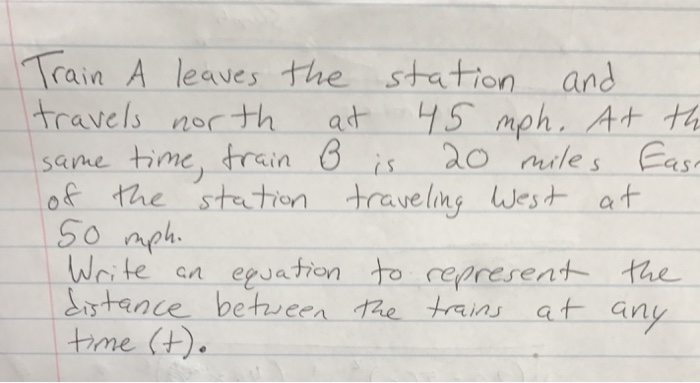 Train A leaves the station and
travels north at 45 mph. At th
same time, train B is 20 miles Eas
of the station traveling West at
50 mph.
Write an equation to represent the
distance between the trains at any
time (t).